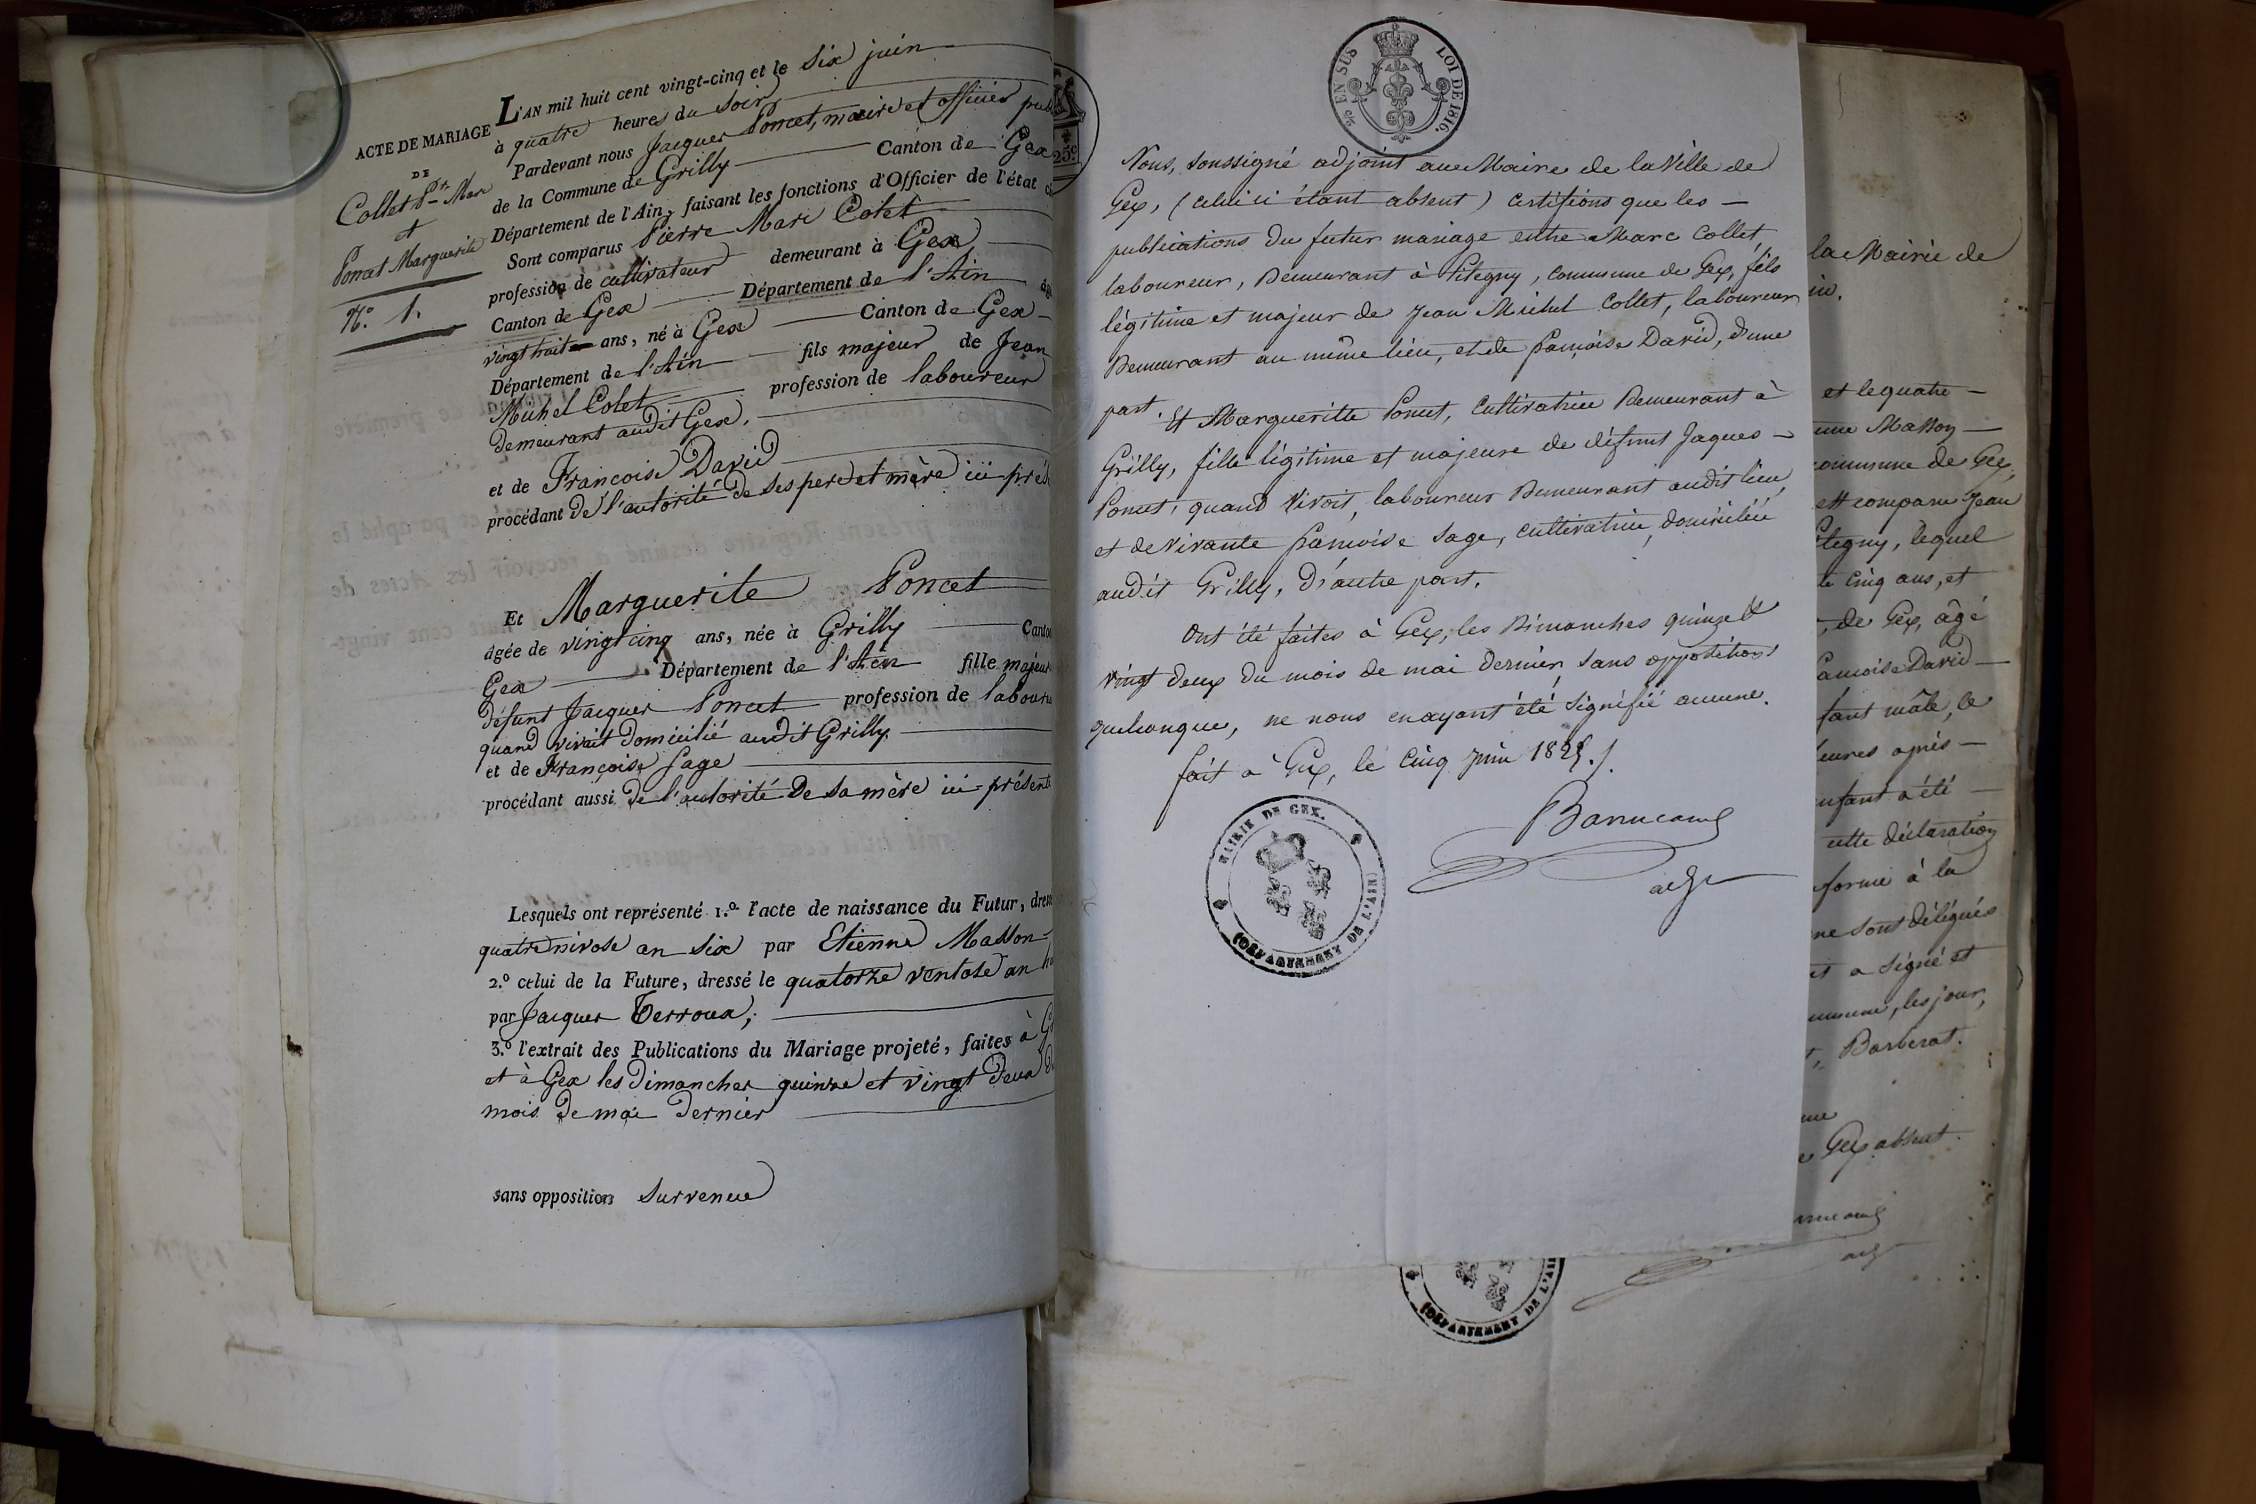 ACTE DE MARIAGE
DE
Collet P.re Marc
et
Poncet Marguerite
N.o 1.
L'AN mil huit cent vingt-cinq et le six juin
à quatre heures du soir
Pardevant nous Jacques Poncet, maire et officier publ
de la Commune de Grilly Canton de Gex
Département de l'Ain, faisant les fonctions d'Officier de l'état ci
Sont comparus Pierre Marc Colet
profession de cultivateur demeurant à Gex
Canton de Gex Département de l'Ain âgé
vingt huit ans, né à Gex Canton de Gex
Département de l'Ain fils majeur de Jean
Michel Colet profession de laboureur
demeurant audit Gex,
et de Francoise David
procédant de l'autorité de ses pere et mère ici prés
Et Marguerite Poncet
âgée de vingt cinq ans, née à Grilly Canto
Gex Département de l'Ain fille majeur
défunt Jacques Poncet profession de laboure
quand vivait domicilié audit Grilly
et de Françoise Sage
procédant aussi de l'autorité de sa mère ici présente
Lesquels ont représenté 1.o l'acte de naissance du Futur, dres
quatre nivose an six par Etienne Masson
2.o celui de la Future, dressé le quatorze ventose an h
par Jacques Terroux;
3.o l'extrait des Publications du Mariage projeté, faites à G
et à Gex les dimanches quinze et vingt deux d
mois de mai dernier
sans opposition survenue
25c
EN SUS
LOI DE 1816.
Nous, soussigné adjoint au Maire de la Ville de
Gex, (celui ci étant absent) certifions que les
publications du futur mariage entre Marc Collet,
laboureur, demeurant à Pitegny, commune de Gex, fils
légitime et majeur de Jean Michel Collet, laboureur
demeurant au même lieu, et de françoise David, d'une
part. Et Margueritte Poncet, cultivatrice demeurant à
Grilly, fille légitime et majeure de défunt Jaques
Poncet, quand vivoit, laboureur demeurant audit lieu,
et de vivante françoise Sage, cultivatrice, domiciliée
audit Grilly, d'autre part.
Ont été faites à Gex, les dimanches quinze &
vingt deux du mois de mai dernier, sans opposition
quelconque, ne nous en ayant été signifié aucune.
fait à Gex, le cinq juin 1825.
adj
MAIRIE DE GEX.
(DÉPARTEMENT DE L'AIN)
la Mairie de
et le quatre
enne Masson
commune de Gex,
est comparu Jean
Pitegny, lequel
te cinq ans, et
, de Gex, âgé
françoise David
fant mâle, le
heures après
enfant a été
cette déclaration
forme à la
ne sont désignés
et a signé et
ommune, les jour,
Barberat.
Gex absent.
adj
(DÉPARTEMENT DE L'AIN